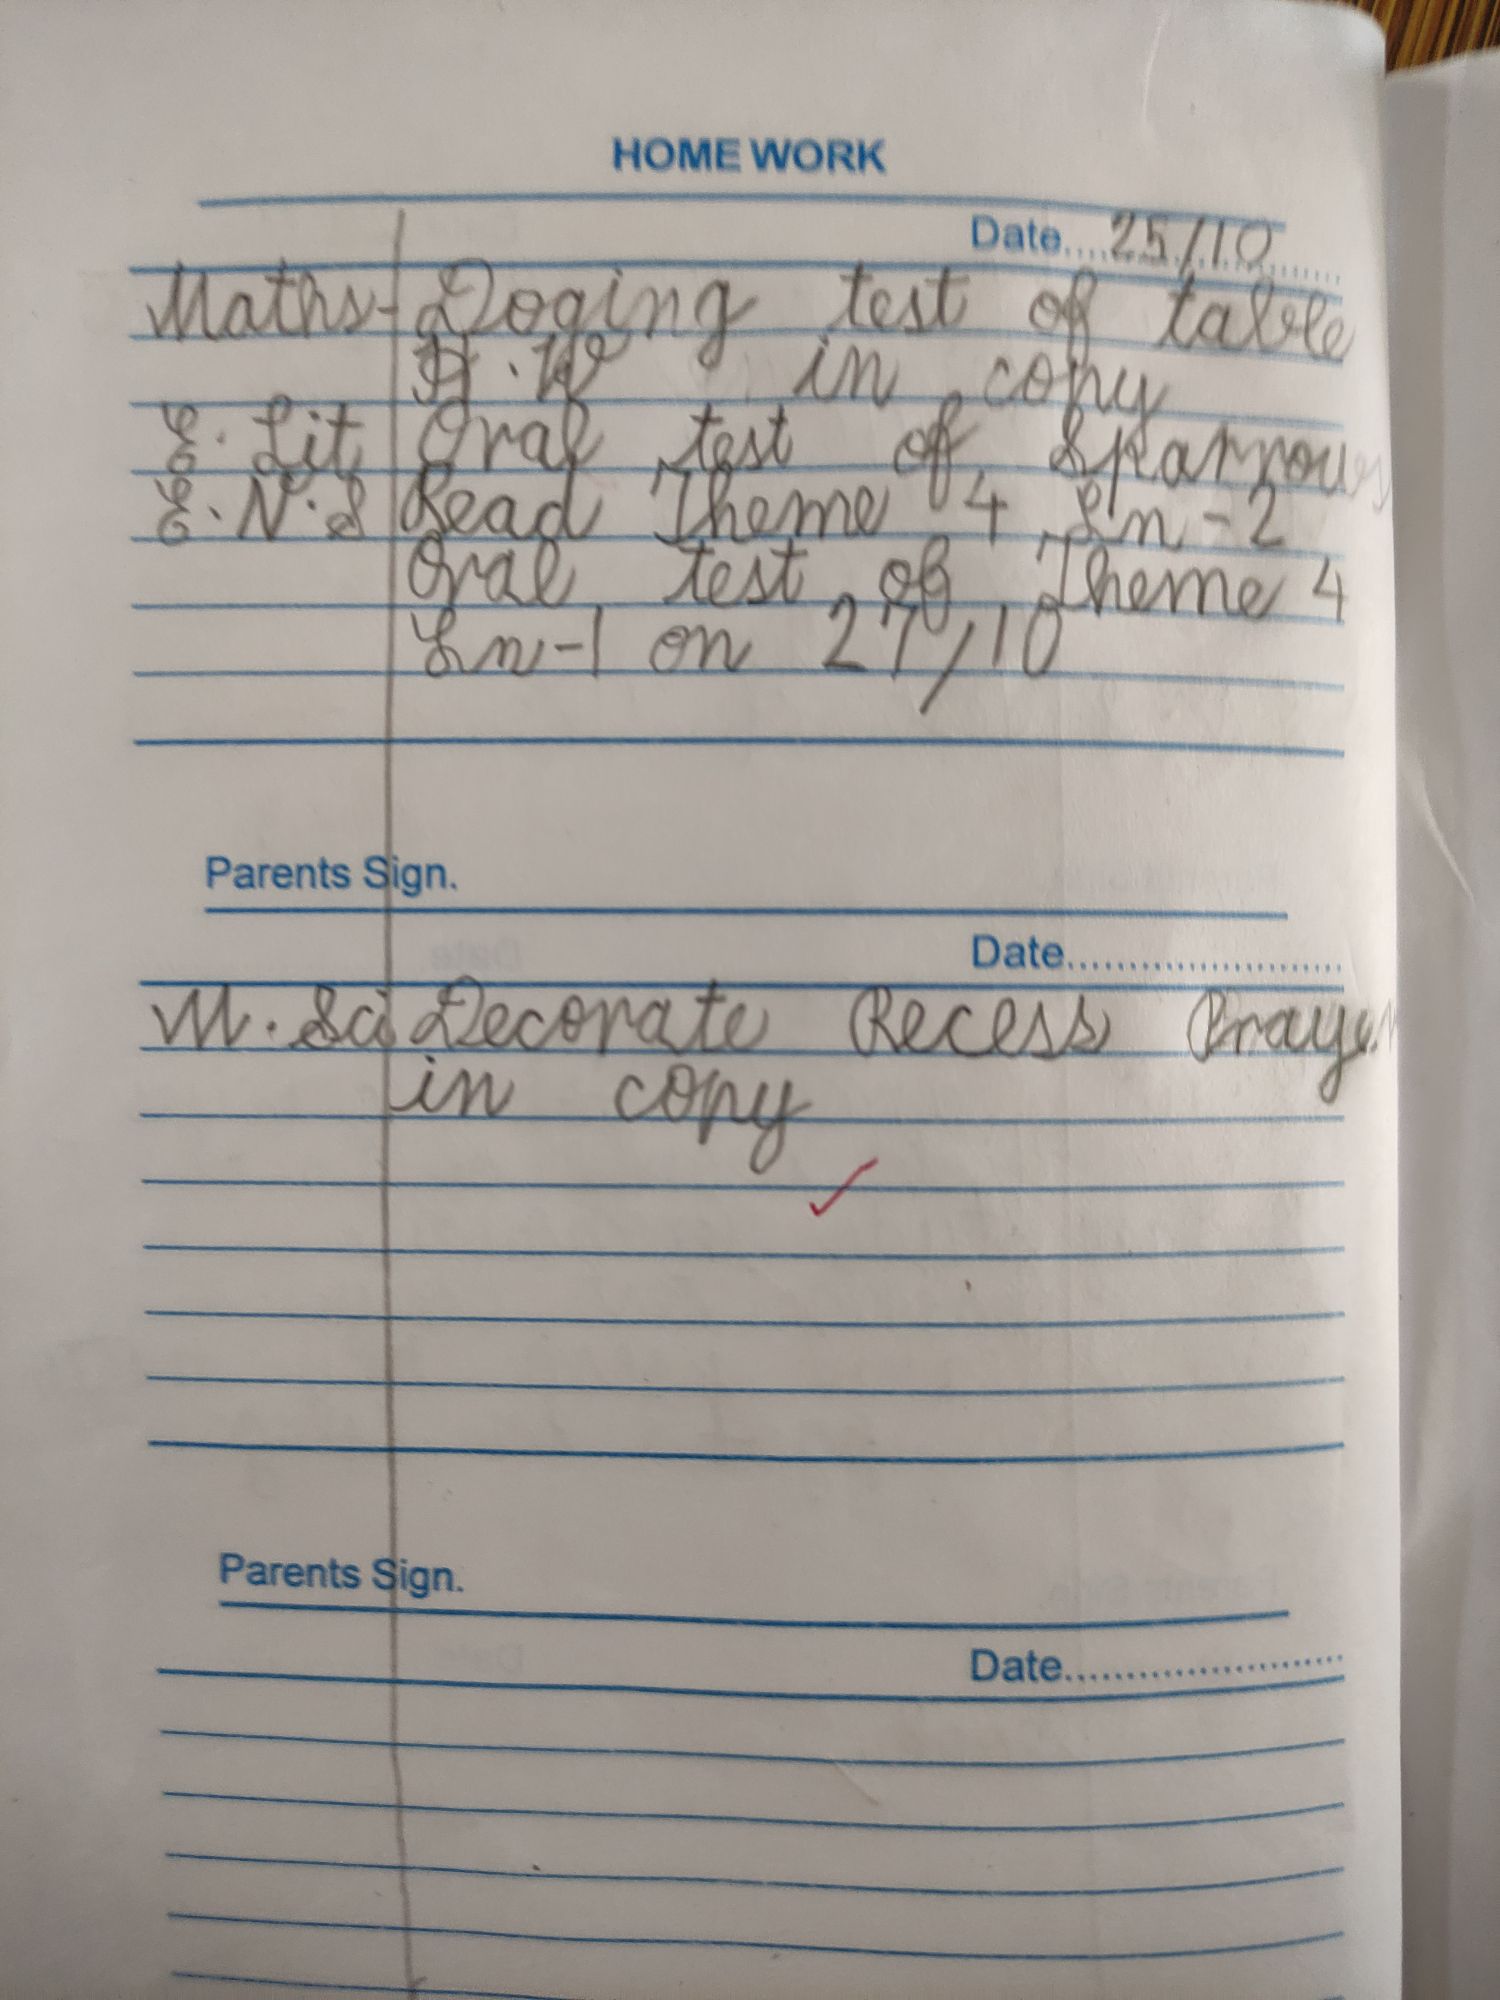 HOME WORK
Date....25/10
Maths- Doging test of table
H.W in copy
E. Lit Oral test of Sparrows
E.N.S Read Theme 4 Ln-2
Oral test of Theme 4
Ln-1 on 27/10
Parents Sign.
Date
M. Sci Decorate Recess Prayer
in copy
Parents Sign.
Date